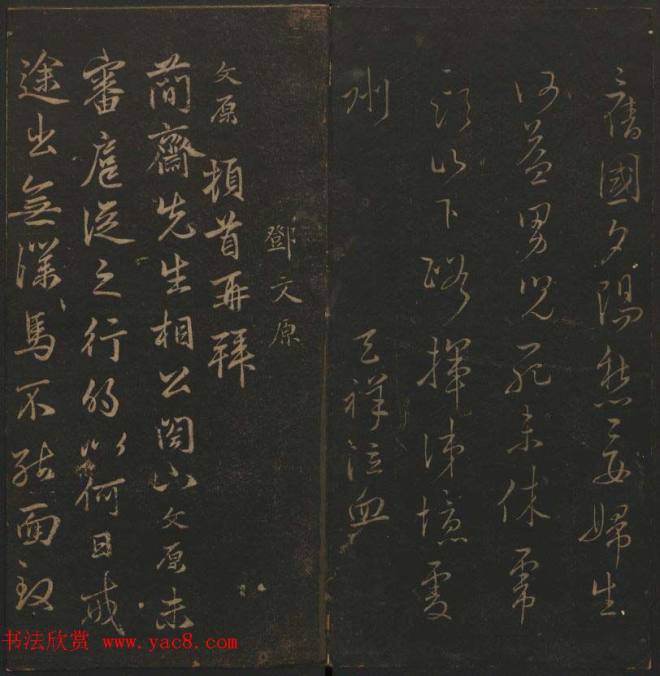 舊國夕陽愁妾婦生
何益男兒死未休虎
頭山下路揮涕憶虔
州 天祥泣血
鄧文原
文原頓首再拜
蕳齋先生相公閣下文原未
審扈從之行的以何日戒
途出無僕馬不能面致
书法欣赏 www.yac8.com